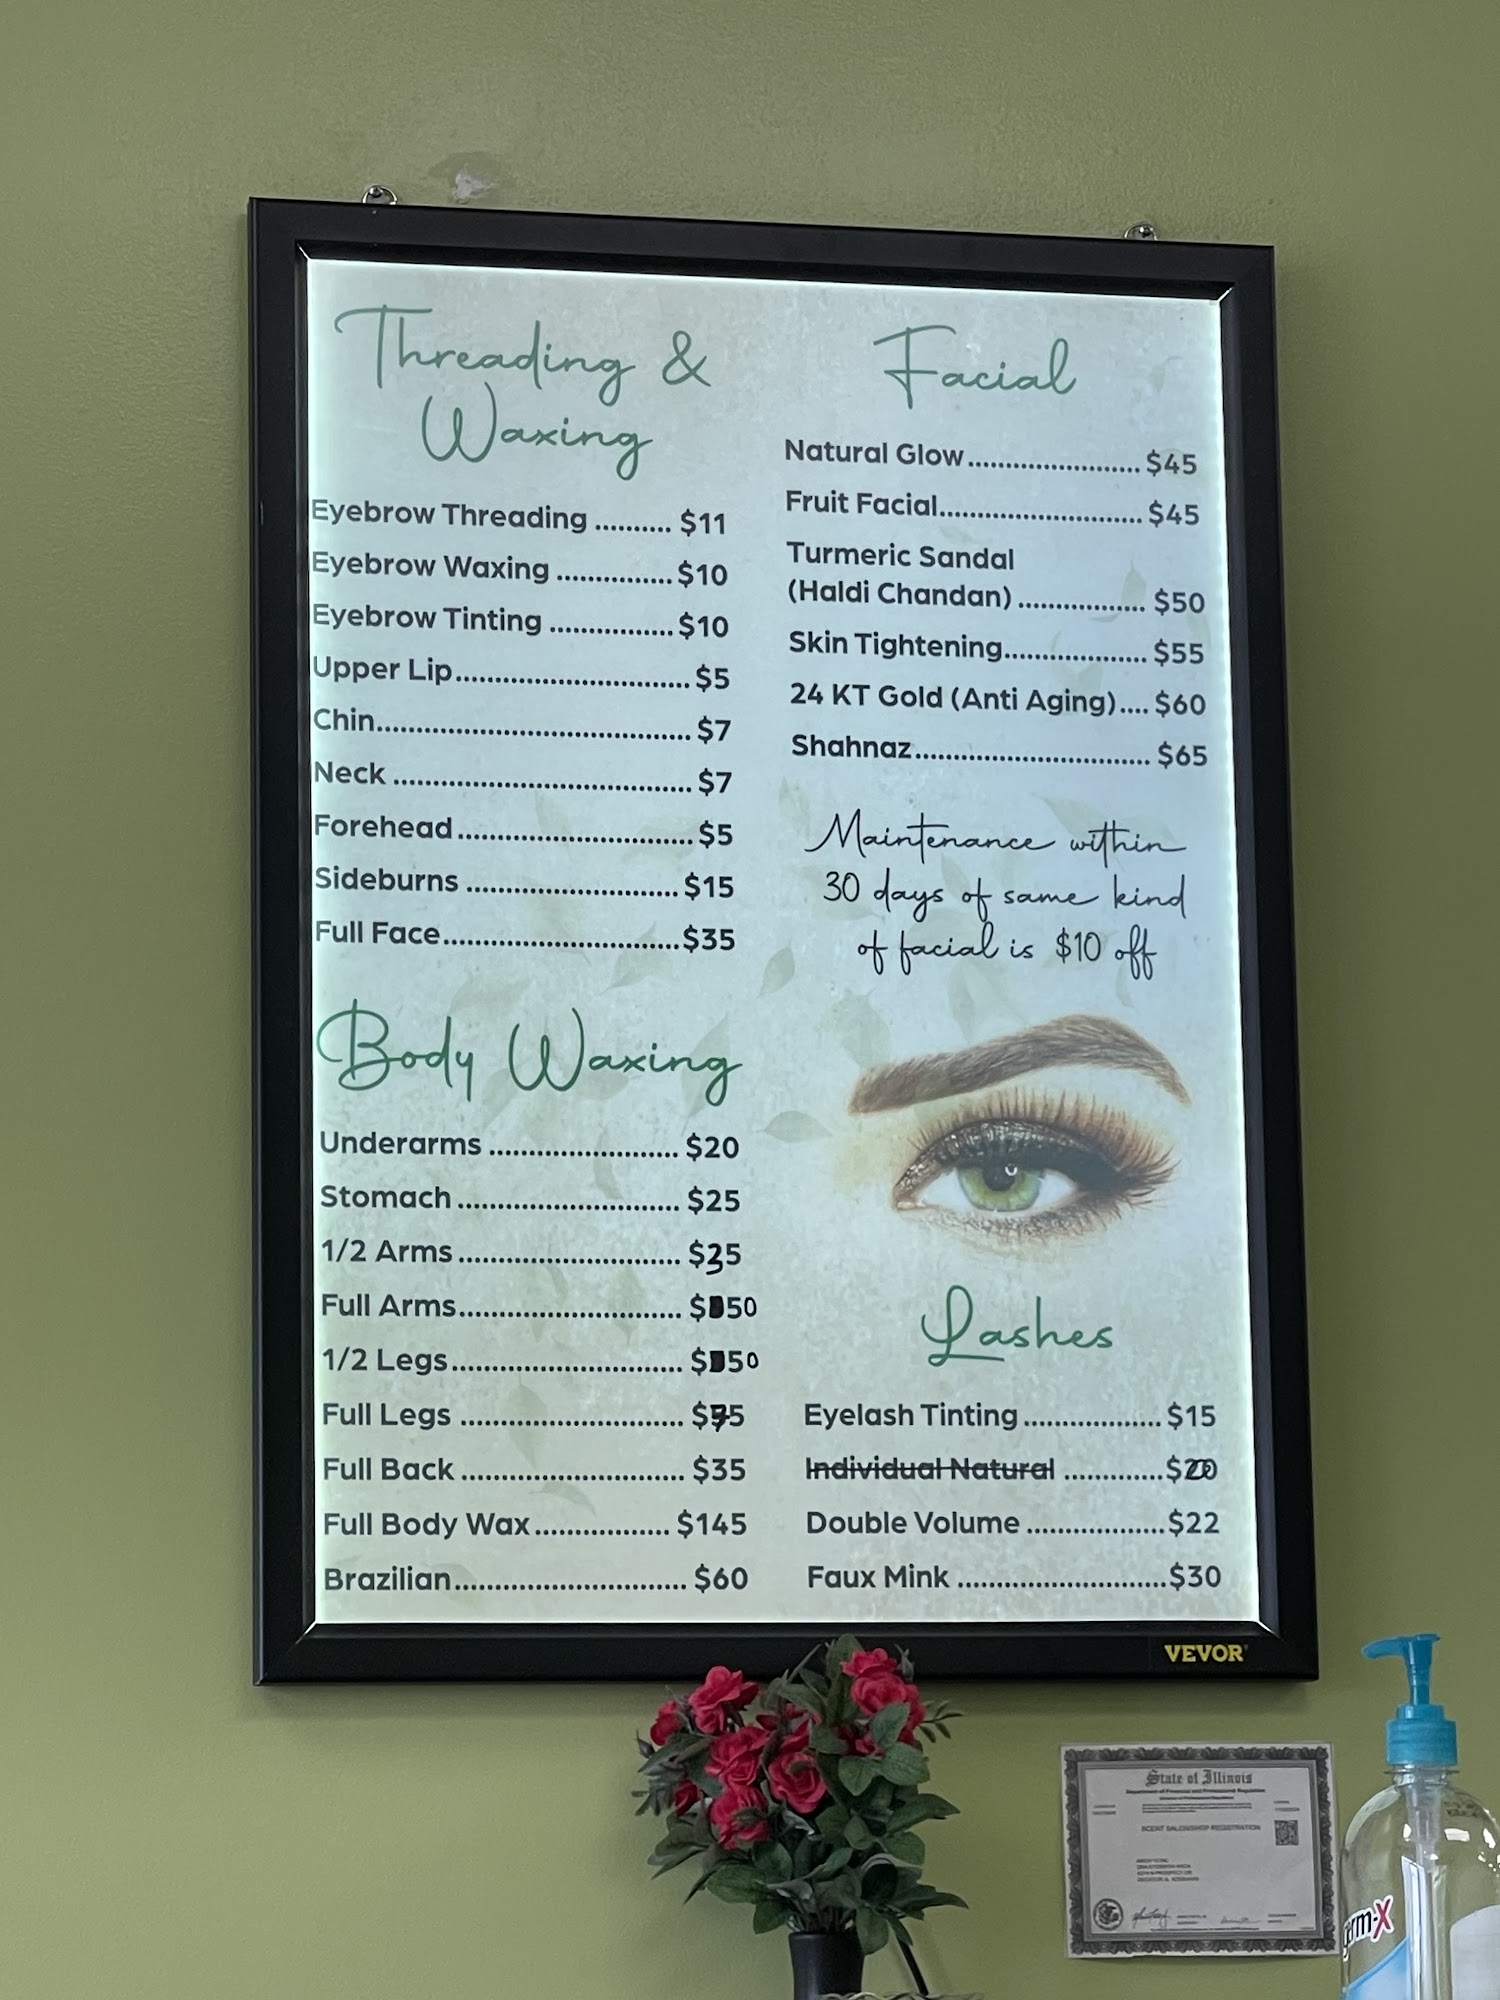 Threading &
Waxing
Eyebrow Threading .......... $11
Eyebrow Waxing ............... $10
Eyebrow Tinting ................ $10
Upper Lip............................... $5
Chin.......................................... $7
Neck ....................................... $7
Forehead ............................... $5
Sideburns ............................ $15
Full Face............................... $35
Body Waxing
Underarms ......................... $20
Stomach ............................. $25
1/2 Arms ............................. $35
Full Arms............................. $50
1/2 Legs .............................. $50
Full Legs ............................. $75
Full Back ............................. $35
Full Body Wax .................. $145
Brazilian............................... $60
Facial
Natural Glow ....................... $45
Fruit Facial........................... $45
Turmeric Sandal
(Haldi Chandan) ................. $50
Skin Tightening................... $55
24 KT Gold (Anti Aging).... $60
Shahnaz ............................... $65
Maintenance within
30 days of same kind
of facial is $10 off
Lashes
Eyelash Tinting .................. $15
Individual Natural ............. $20
Double Volume .................. $22
Faux Mink ........................... $30
VEVOR
State of Illinois
Department of Financial and Professional Regulation
germ-X